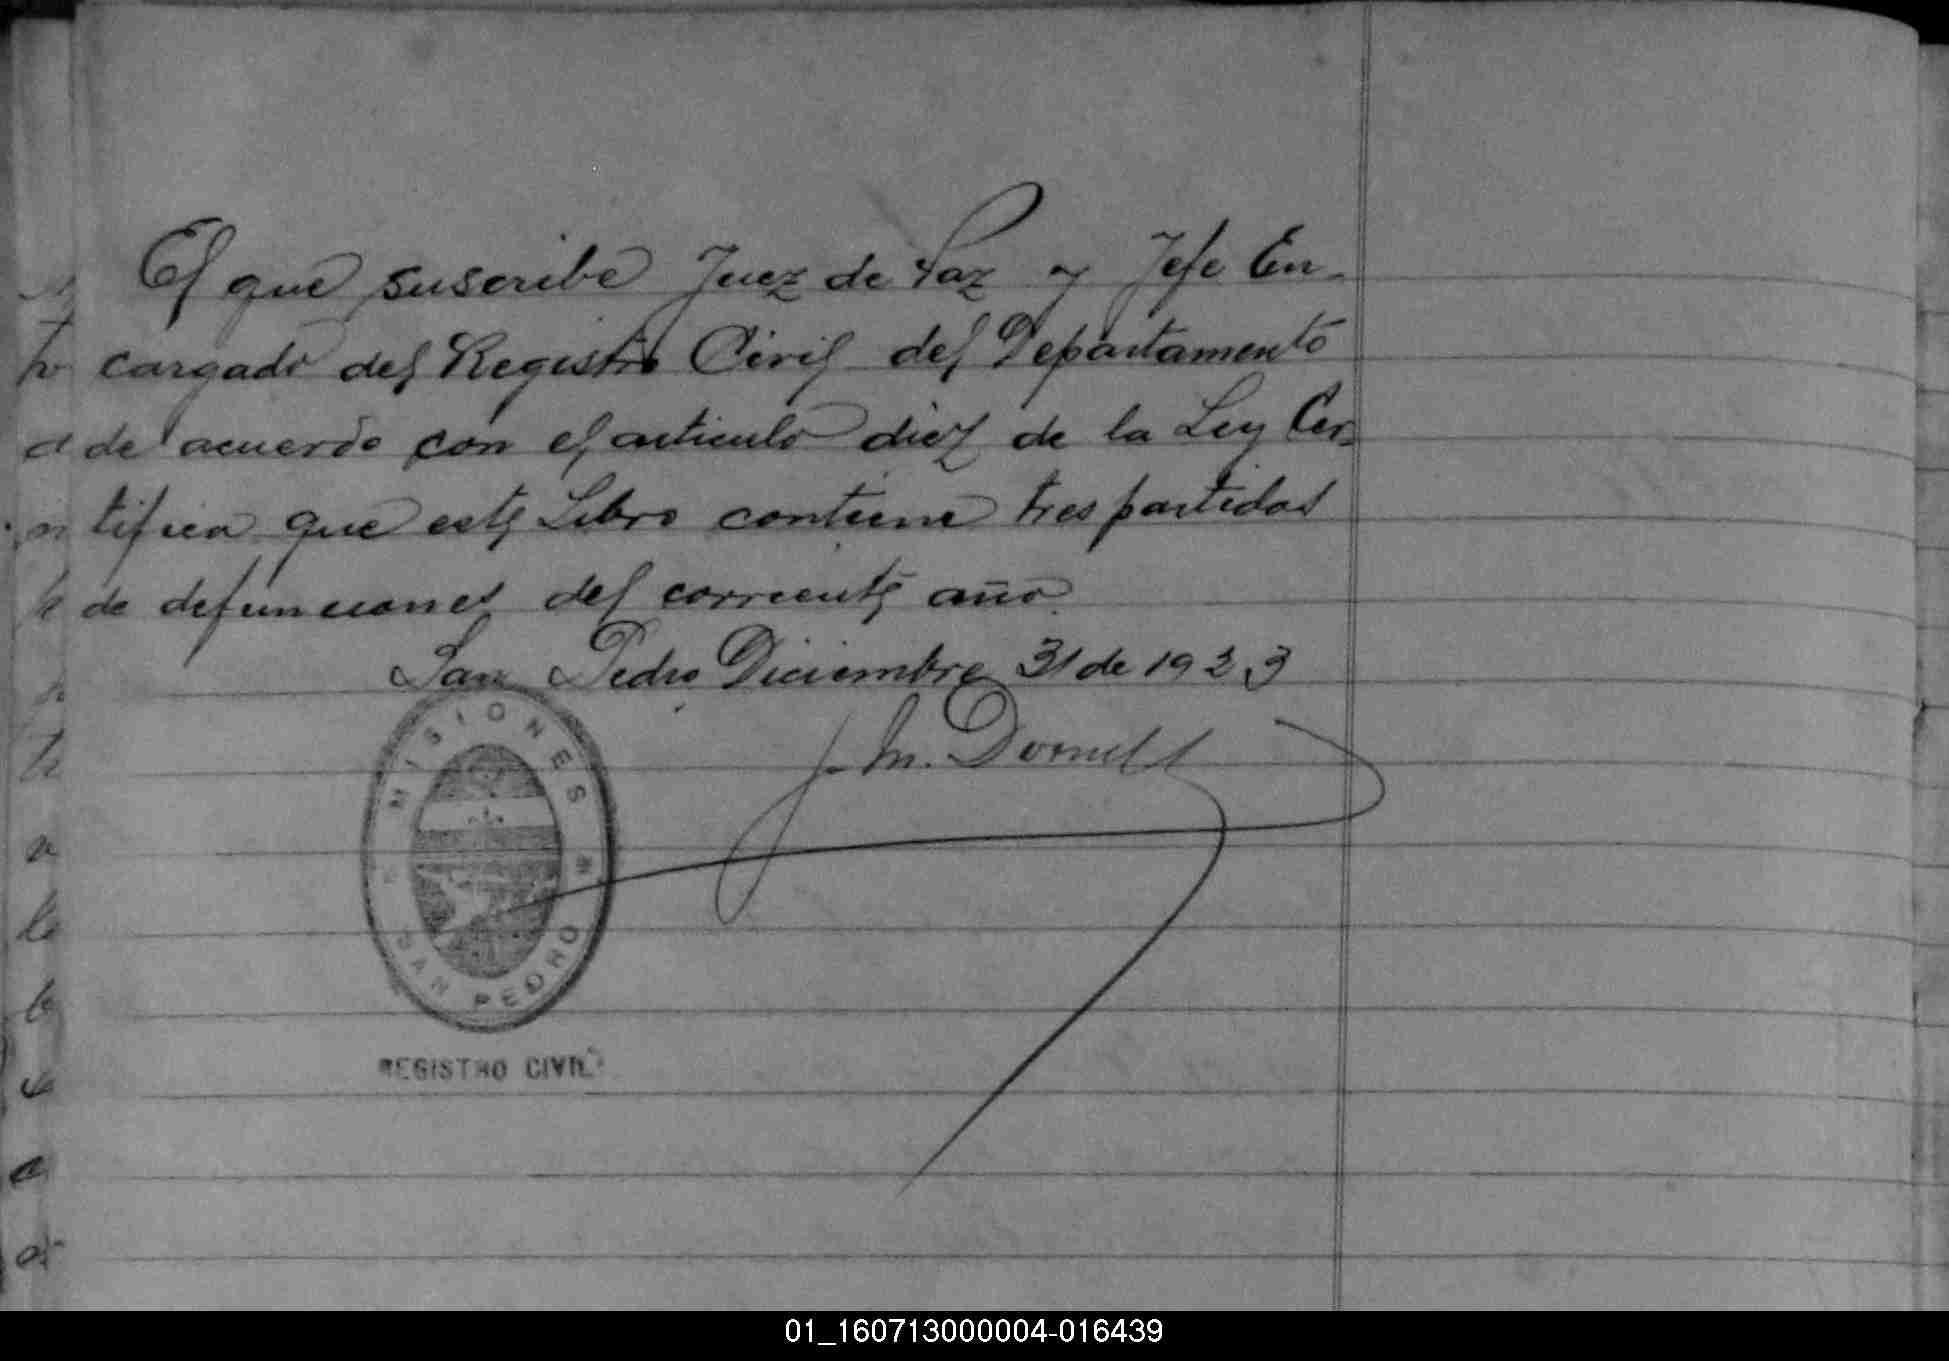 El que suscribe Juez de Paz y Jefe En-
cargado del Registro Civil del Departamento
de acuerdo con el articulo diez de la Ley Cer-
tifica que este Libro contiene tres partidas
de defunciones del corriente año
San Pedro Diciembre 31 de 1923
J. M. Dornell
MISIONES
SAN PEDRO
REGISTRO CIVIL
01_160713000004-016439